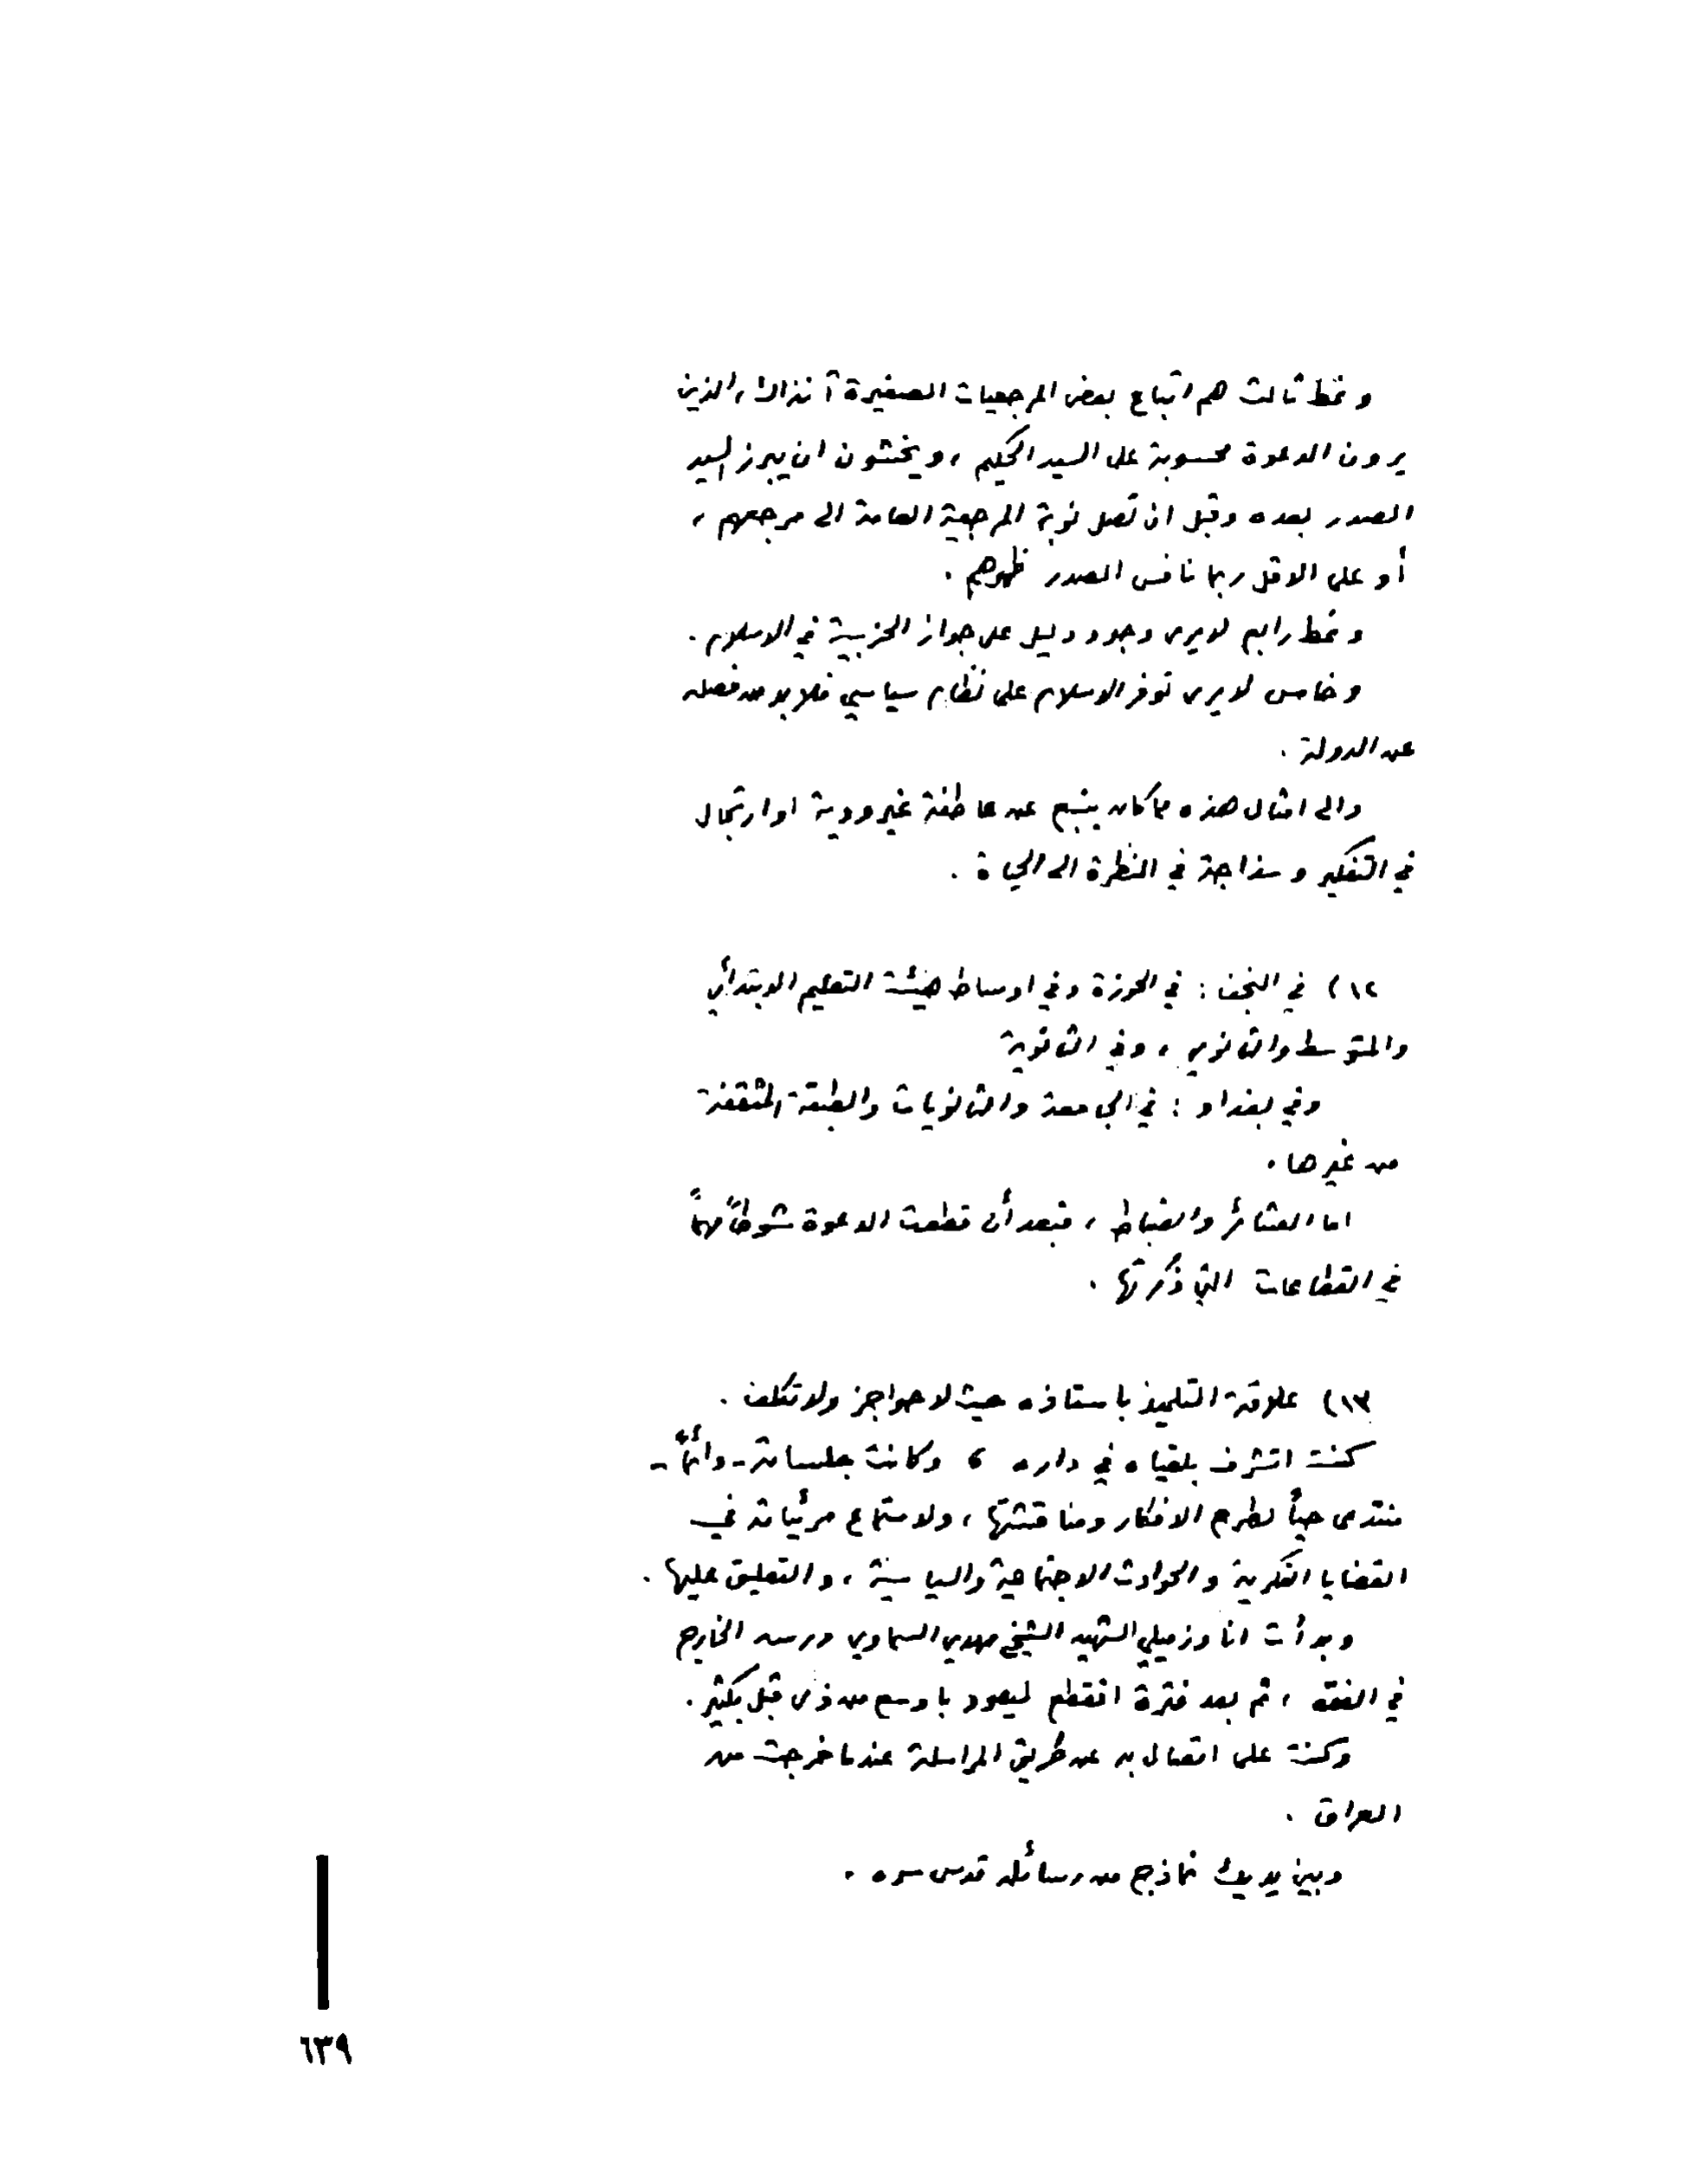 ونمط ثالث هم اتباع بعض المرجعيات الصغيرة آنذاك، الذين
يرون الدعوة محسوبة على السيد الحكيم، ويخشون ان يبرز السيد
الصدر بعده وقبل ان تصل نوبة المرجعية العامة الى مرجعهم،
أو على الاقل ربما نافس الصدر ظهورهم.
ونمط رابع لا يرى وجود دليل على جواز الحزبية في الاسلام.
وخامس لا يرى توفر الاسلام على نظام سياسي فلا بد من فصله
عن الدولة.
والى امثال هذه مما كان ينبع عن عاطفة غير ودية او ارتجال
في التفكير وسذاجة في النظرة الى الحياة.
١٢) في النجف: في الحوزة وفي اوساط هيئة التعليم الابتدائي
والمتوسط والثانوي، وفي الثانوية
وفي بغداد: في الجامعة والثانويات والطبقة المثقفة
من غيرها.
اما العشائر والضباط، فبعد أن قطعت الدعوة شوطاً مهماً
في القطاعات التي ذكرتها.
١٣) علاقة التلميذ باستاذه حيث لا حواجز ولا تكلف.
كنت اتشرف بلقياه في داره، وكانت جلساته - دائماً -
منتدى حياً لطرح الافكار ومناقشتها، ولاستماع مرئياته في
القضايا الفكرية والحوادث الاجتماعية والسياسية، والتعليق عليها.
وبدأت انا وزميلي الشهيد الشيخ مهدي السماوي درسه الخارج
في الفقه، ثم بعد فترة انقطع ليعود باوسع من ذي قبل بكثير.
وكنت على اتصال به عن طريق المراسلة عندما خرجت من
العراق.
وبين يديك نماذج من رسائله قدس سره.
٦٣٩